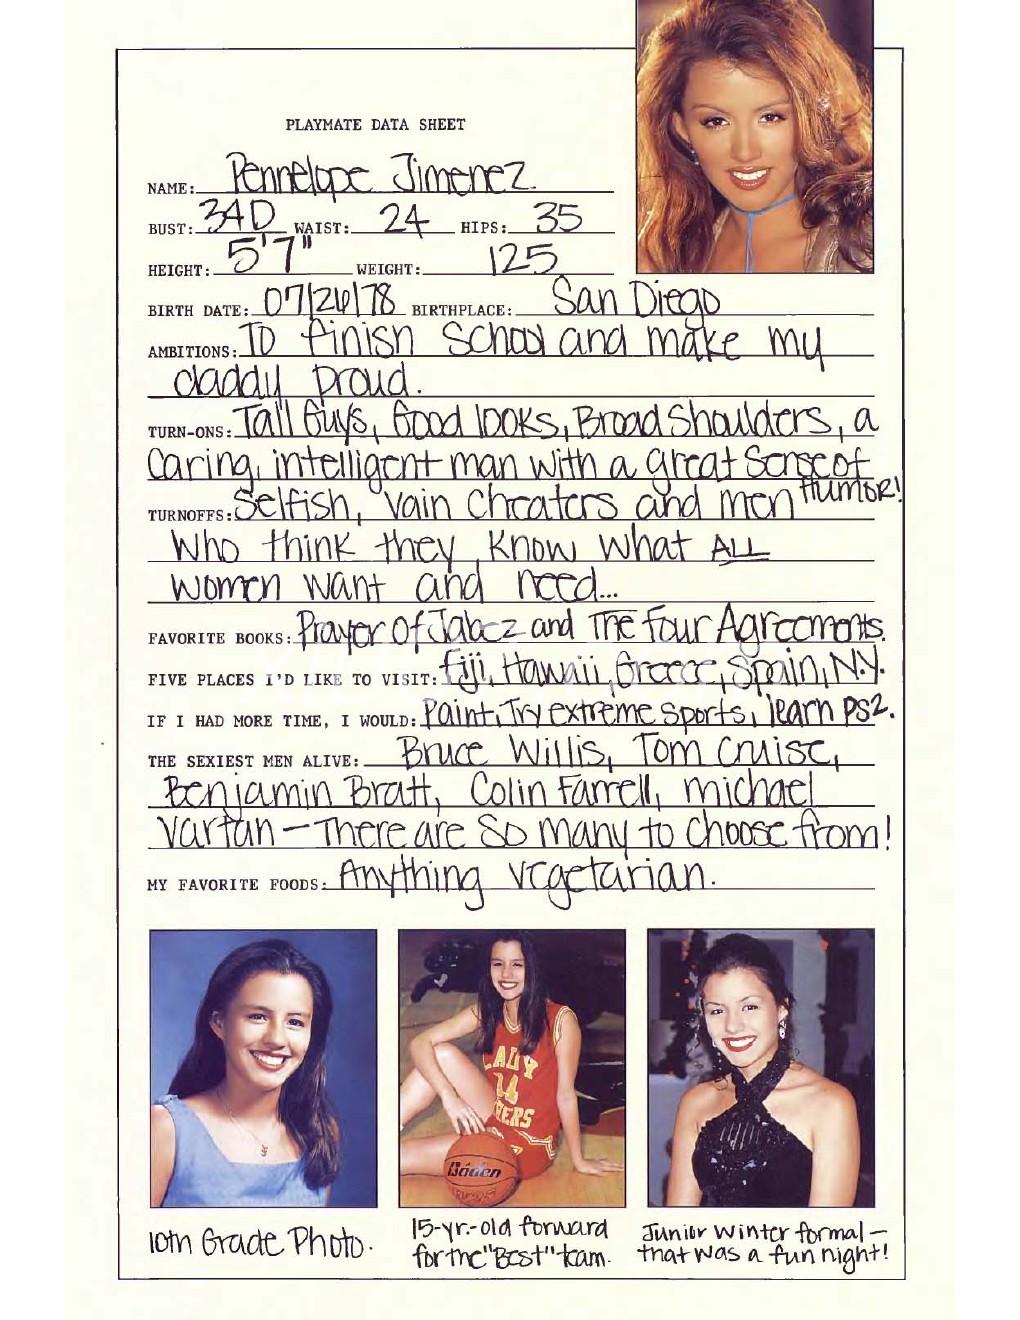 PLAYMATE DATA SHEET
NAME: Pennelope Jimenez
BUST: 34D WAIST: 24 HIPS: 35
HEIGHT: 5'7" WEIGHT: 125
BIRTH DATE: 07/26/78 BIRTHPLACE: San Diego
AMBITIONS: To finish School and make my
daddy proud.
TURN-ONS: Tall Guys, Good looks, Broad Shoulders, a
Caring, intelligent man with a great Sense of
Humor!
TURNOFFS: Selfish, Vain Cheaters and men
Who think they know what ALL
women want and need...
FAVORITE BOOKS: Prayer of Jabez and The Four Agreements.
FIVE PLACES I'D LIKE TO VISIT: Fiji, Hawaii, Greece, Spain, N.Y.
IF I HAD MORE TIME, I WOULD: Paint, Try extreme sports, learn PS2.
THE SEXIEST MEN ALIVE: Bruce Willis, Tom Cruise,
Benjamin Bratt, Colin Farrell, Michael
Vartan – There are So many to choose from!
MY FAVORITE FOODS: Anything vegetarian.
LADY
14
Báden
10th Grade Photo.
15-yr.-old forward
for the "Best" team.
Junior Winter formal –
that was a fun night!